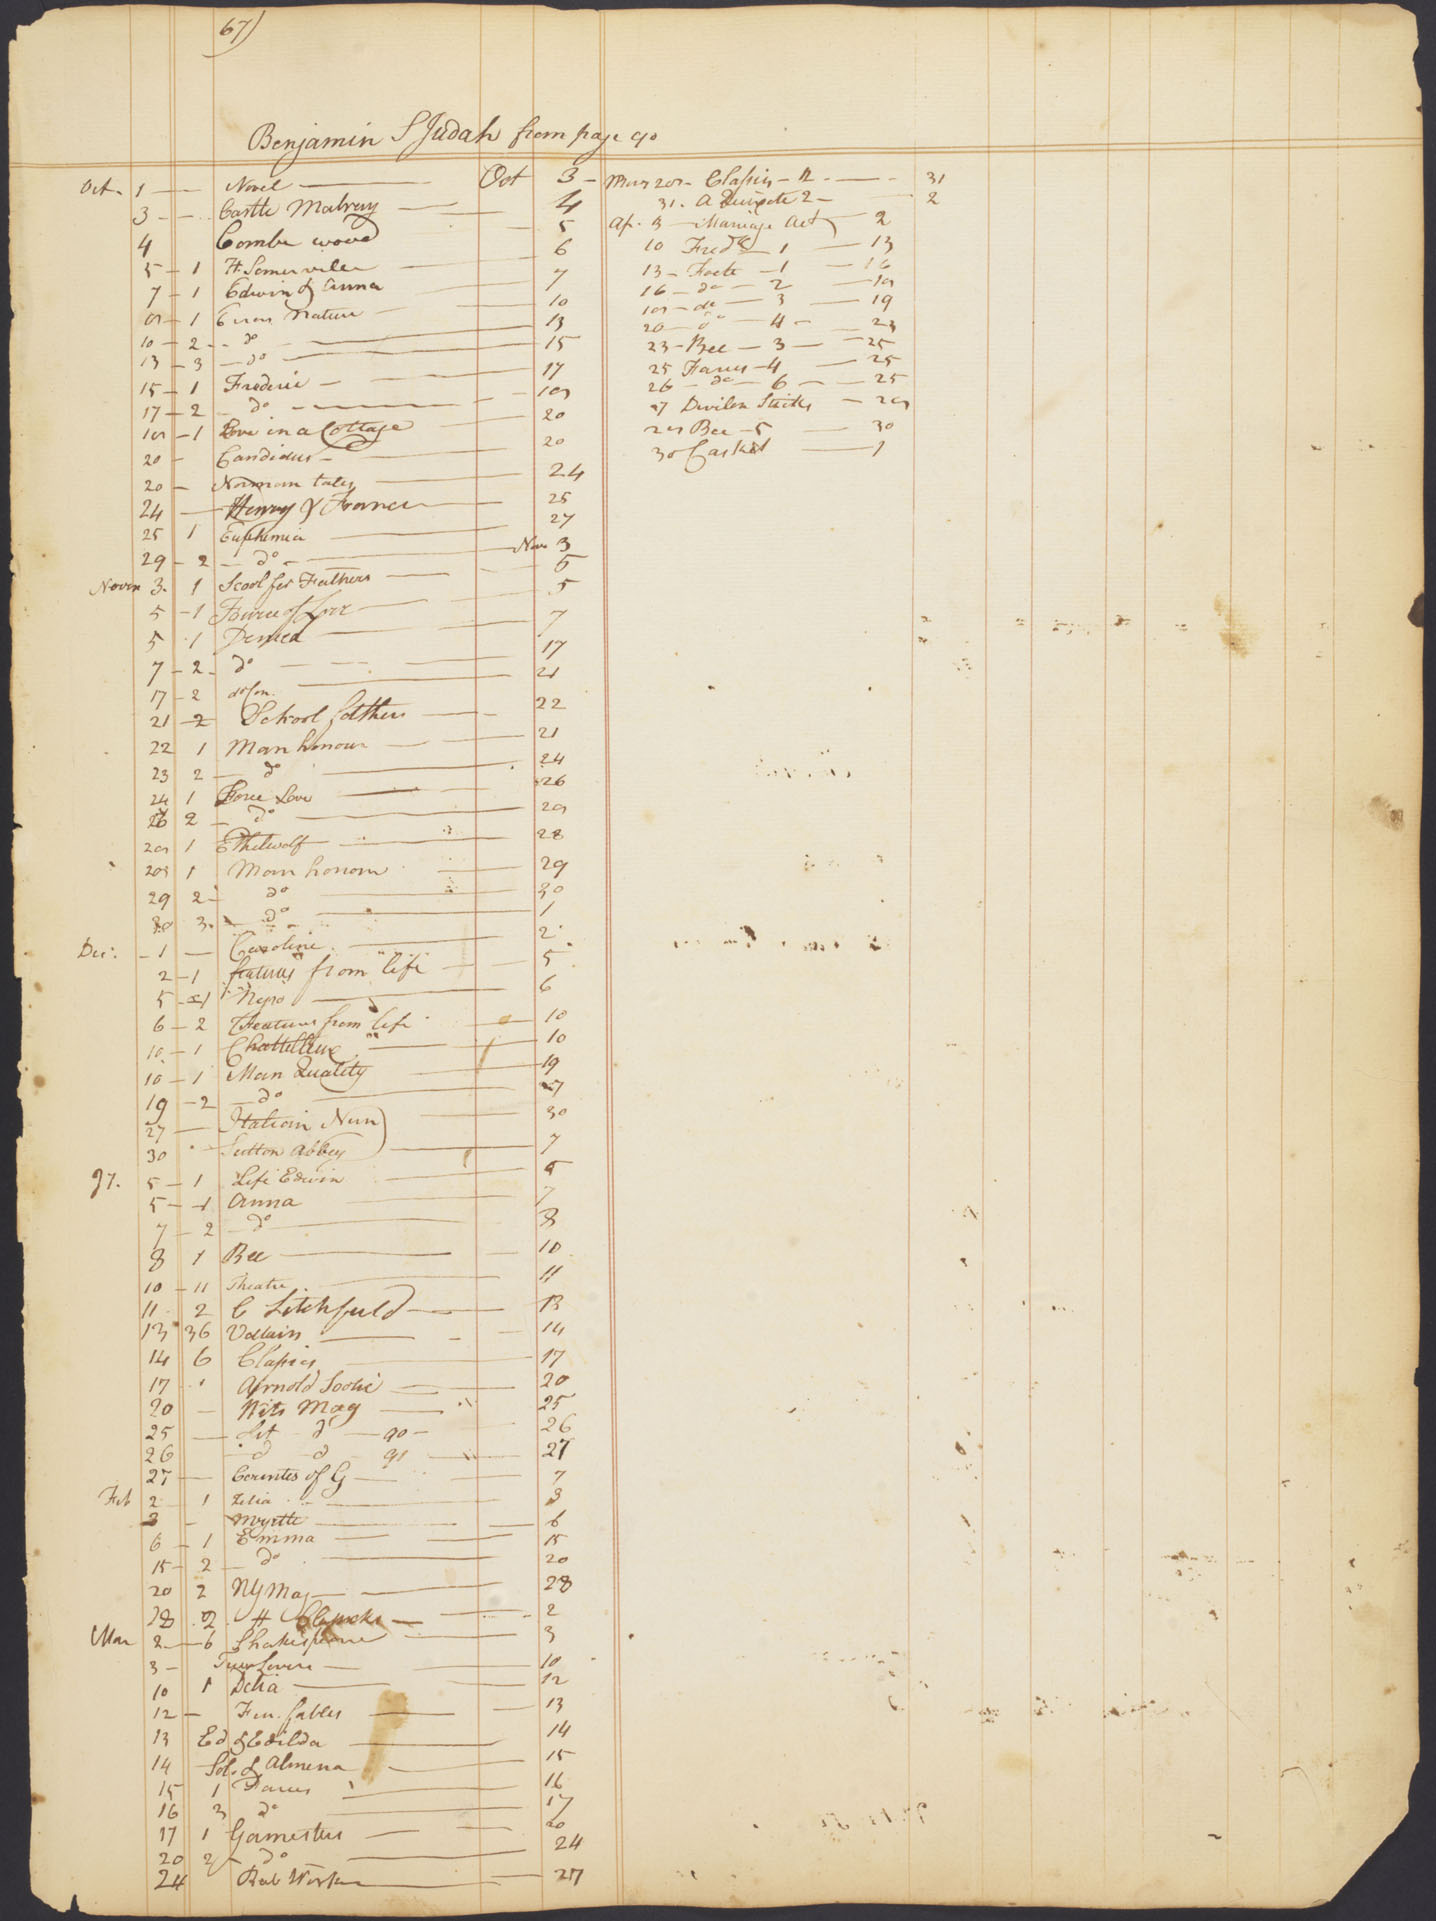 67)
Benjamin S Judah from page 90
Oct. 1 — Novel — Oct 3
3 — Castle Mabray — 4
4 Combe wood — 5
5 — 1 H. Somerville — 6
7 — 1 Edwin & Anna — 7
— 1 Errors Nature — 10
10 — 2 — do — 13
13 — 3 — do — 15
15 — 1 Frederic — 17
17 — 2 — do —
— 1 Love in a Cottage — 20
20 — Candidus — 20
20 — Norman tales — 24
24 — Henry & Frances — 25
25 1 Euphemia — 27
29 — 2 — do — Nov 3
Novem 3. 1 Scool for Fathers — 5
5 — 1 Force of Love — 5
5 1 — 7
7 — 2 — do — 17
17 — 2 — 21
21 — 2 School fathers — 22
22 1 Man honour — 21
23 2 — do — 24
24 1 Force Love — 26
26 2 — do —
1 Ethelwolf — 28
1 Man honour — 29
29 2 — do — 30
30 3. — do — 1
Dec: — 1 — Caroline — 2
2 — 1 features from life — 5
5 — 1 — 6
6 — 2 Features from life — 10
10 — 1 — 10
10 — 1 Man Quality — 19
19 — 2 — do — 27
27 — Italian Nun) — 30
30 — Sutton Abbey — 7
5 — 1 Life Edwin
5 — 1 Anna — 7
7 — 2 — do — 8
8 1 Bee — 10
10 — 11 Theatre — 11
11 2 C Litchfield — 13
13 36 — 14
14 6 Classics — 17
17 Arnold — 20
20 — Wits Mag — 25
25 — Lit do — 90 — 26
26 — do — do 91 — 27
27 — Countes of G — 7
Feb 2 1 — 3
3 — Myrtle — 6
6 — 1 Emma — 15
15 — 2 — do — 20
20 2 NY Mag — 28
28 2 H — 2
Mar 2 — 6 Shakespeare — 3
3 — Lovers — 10
10 1 Delia — 12
12 — Fem. fables — 13
13 Ed & Edilda — 14
14 Sol. & Almena — 15
15 1 Farces — 16
16 3 do — 17
17 1 Gamesters — 20
20 2 — do — 24
24 Rab Works — 27
Classics — 31
31. A Quixote 2 — 2
Ap. 3 — Marriage Act — 2
10 Fredk — 1 — 13
13 — Foote — 1 — 16
16 — do — 2 —
— do — 3 — 19
20 — do — 4 — 23
23 — Bee — 3 — 25
25 Farces — 4 — 25
26 — do — 6 — 25
Sticks
Bee — 5 — 30
30 Casket — 1